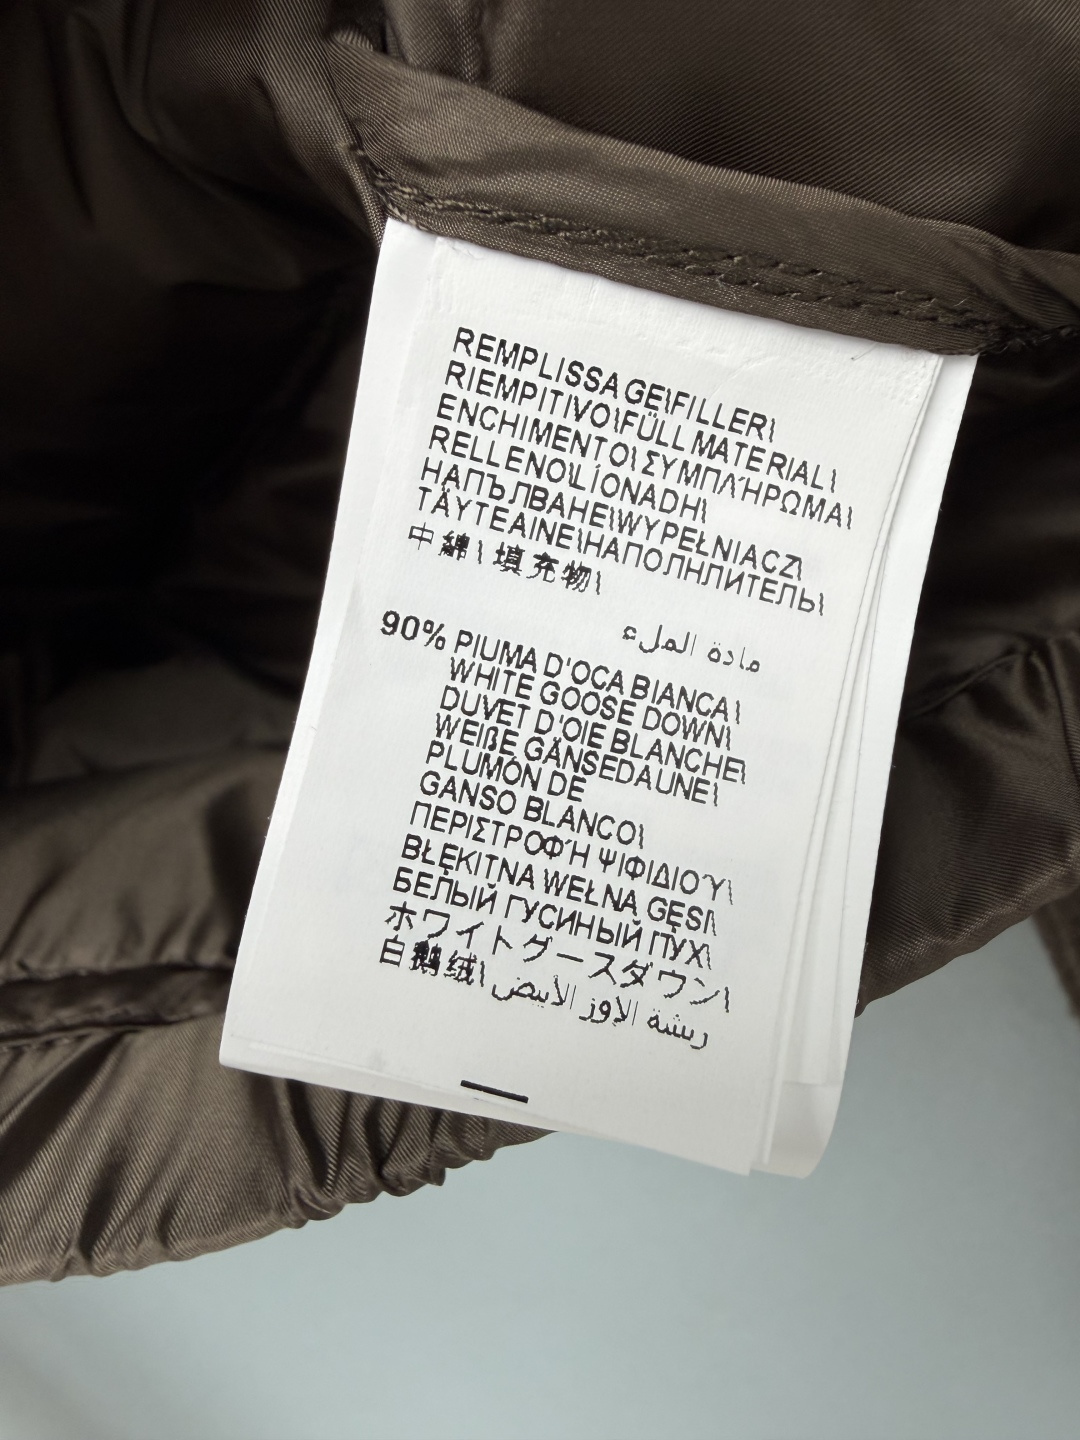 REMPLISSAGE\FILLER\
RIEMPITIVO\FÜLLMATERIAL\
ENCHIMENTO\ΣΥΜΠΛΉΡΩΜΑ\
RELLENO\LÍONADH\
НАПЪЛВАНЕ\WYPEŁNIACZ\
TÄYTEAINE\НАПОЛНЛИТЕЛЬ\
中綿\ 填充物\
مادة الملء
90% PIUMA D'OCA BIANCA\
WHITE GOOSE DOWN\
DUVET D'OIE BLANCHE\
WEIßE GÄNSEDAUNE\
PLUMÓN DE
GANSO BLANCO\
ΠΕΡΙΣΤΡΟΦΉ ΨΙΦΙΔΙΟΎ\
BŁĘKITNA WEŁNA GĘSI\
БЕЛЫЙ ГУСИНЫЙ ПУХ\
ホワイトグースダウン\
白鹅绒\ ريشة الاوز الأبيض